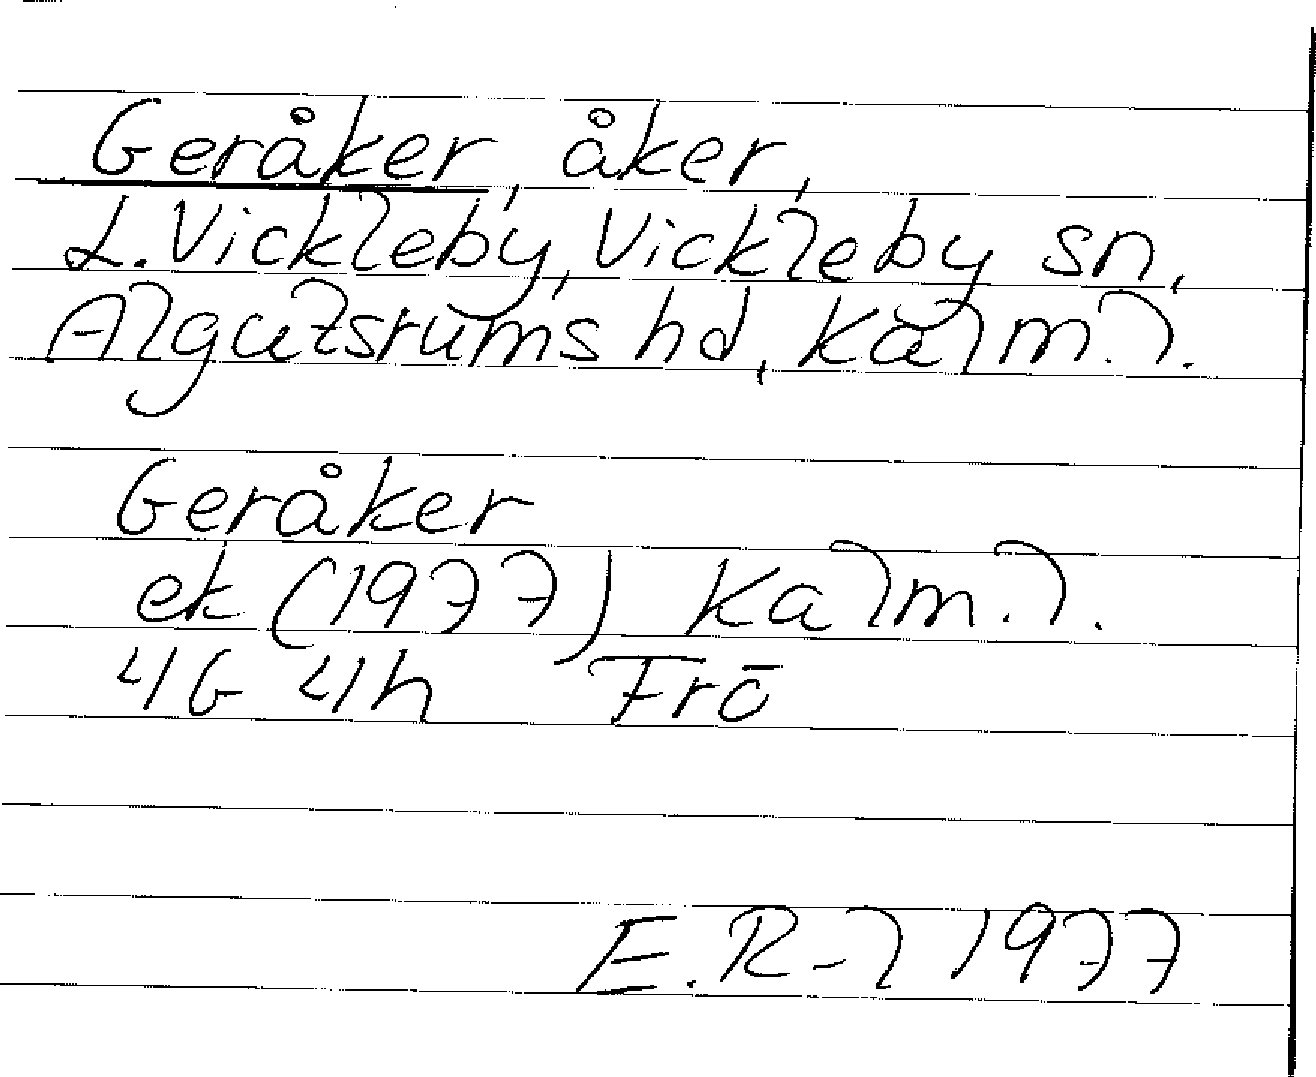 Geråker, åker,
L. Vickleby, Vickleby sn,
Algutsrums hd, Kalm. l.
Geråker
ek (1977) Kalm. l.
4G 4h Frö
E. R-l 1977